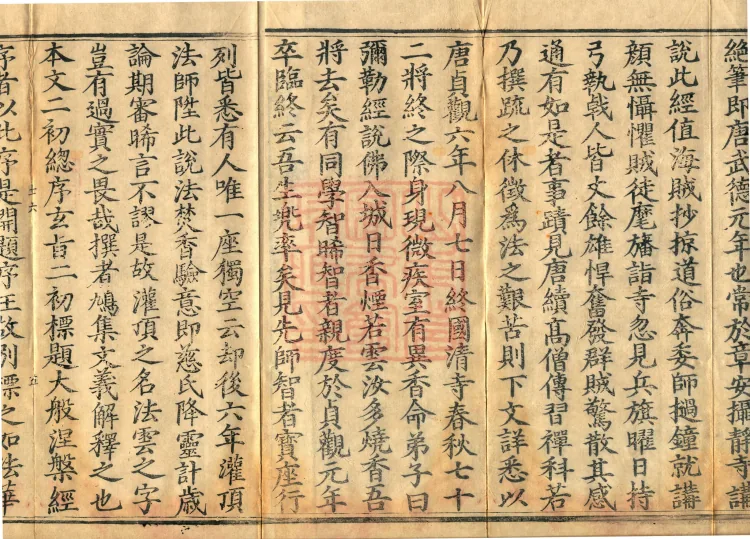 絶筆即唐武德元年也常於章安攝靜寺講
說此經值海賊抄掠道俗奔委師撾鐘就講
顔無懾懼賊徒麾旛詣寺忽見兵旗曜日持
弓執戟人皆丈餘雄悍奮發群賊驚散其感
通有如是者事蹟見唐續高僧傳習禪科若
乃撰疏之休徵為法之艱苦則下文詳悉以
唐貞觀六年八月七日終國清寺春秋七十
二將終之際身現微疾室有異香命弟子曰
彌勒經說佛入城日香煙若雲汝多燒香吾
將去矣有同學智晞智者親度於貞觀元年
卒臨終云吾生兜率矣見先師智者寶座行
列皆悉有人唯一座獨空云却後六年灌頂
法師陞此說法焚香驗意即慈氏降靈計歲
論期審晞言不謬是故灌頂之名法雲之字
豈有過實之畏哉撰者鳩集文義解釋之也
本文二初總序玄旨二初標題大般涅槃經
五
序者以此序是開題序王故別標之如法華